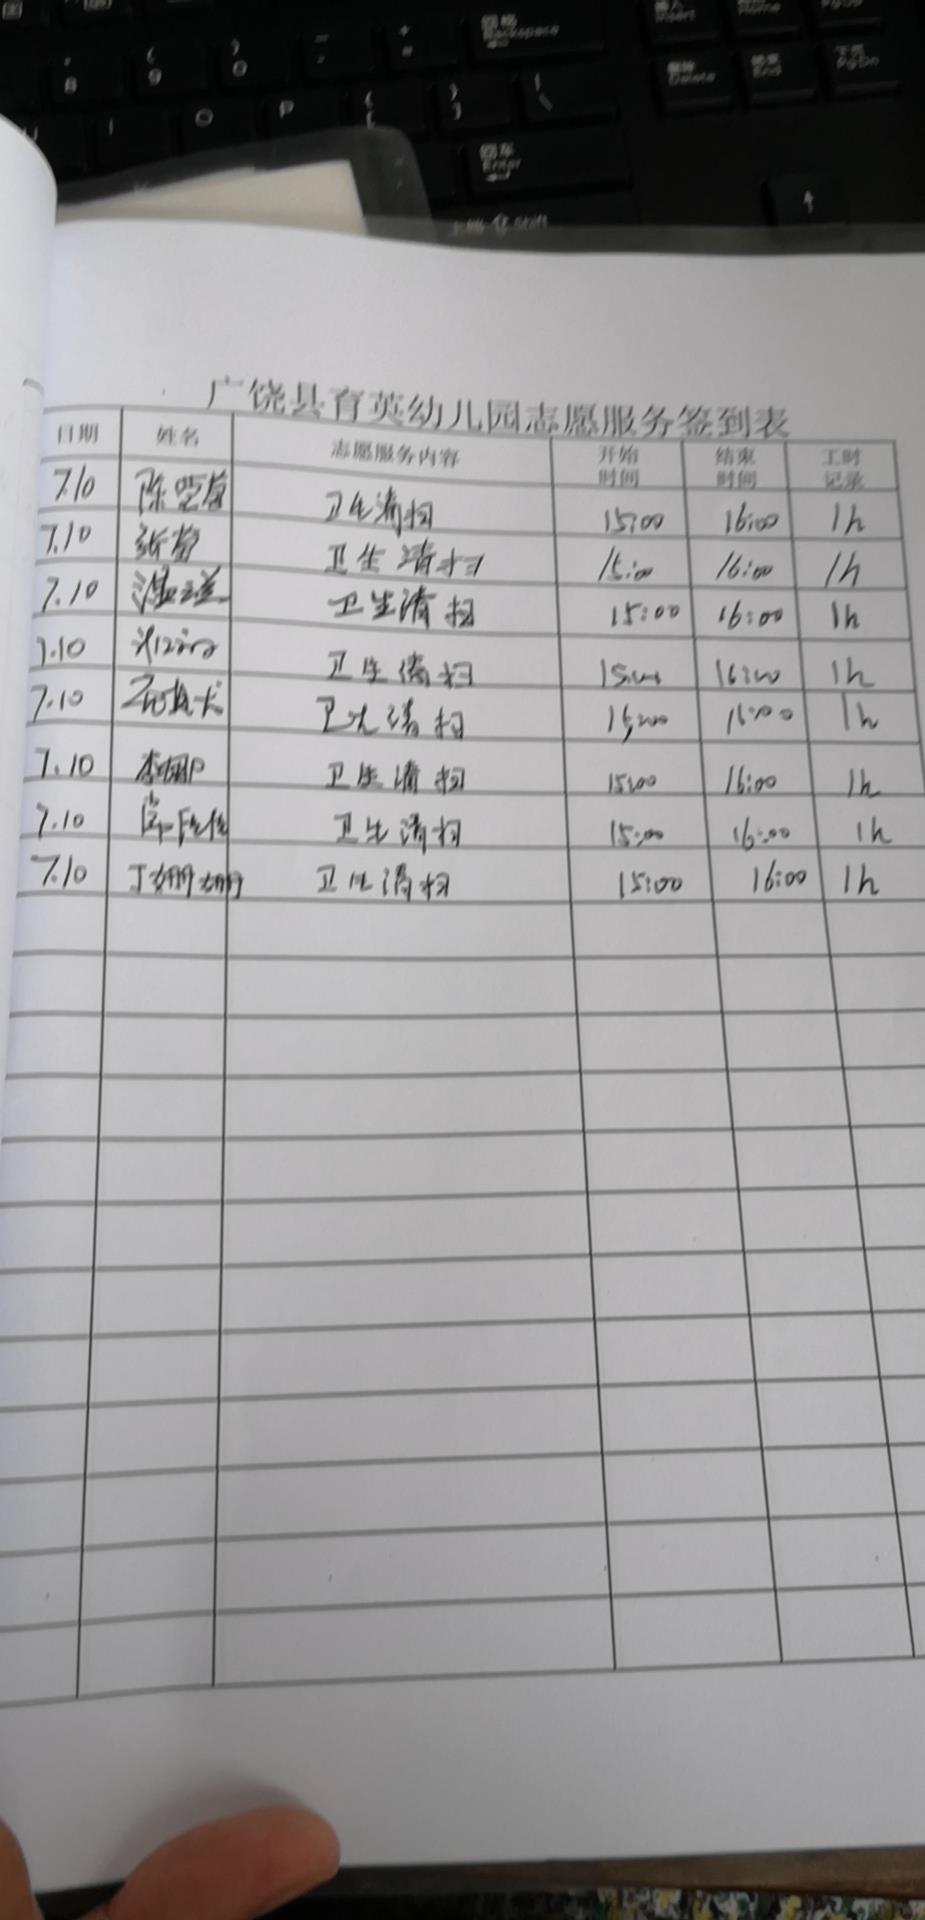 Backspace
Insert
Home
PgUp
8 9 0
Delete End PgDn
I O P
Enter
上档 Shift
广饶县育英幼儿园志愿服务签到表
日期 姓名 志愿服务内容 开始时间 结束时间 工时记录
7.10 卫生清扫 15:00 16:00 1h
7.10 卫生清扫 15:00 16:00 1h
7.10 卫生清扫 15:00 16:00 1h
7.10 卫生清扫 15:00 16:00 1h
7.10 卫生清扫 15:00 16:00 1h
7.10 李娜 卫生清扫 15:00 16:00 1h
7.10 卫生清扫 15:00 16:00 1h
7.10 丁姗姗 卫生清扫 15:00 16:00 1h